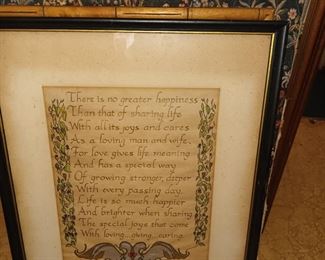 There is no greater happiness
Than that of sharing life
With all its joys and cares
As a loving man and wife,
For love gives life meaning
And has a special way
Of growing stronger, deeper
With every passing day.
Life is so much happier
And brighter when sharing
The special joys that come
With loving...giving...caring.